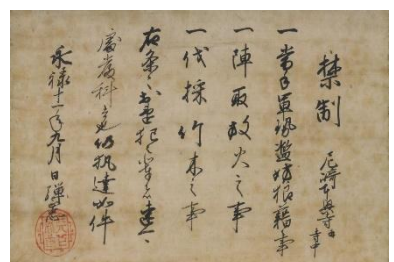 禁制
尼崎本興寺
一当手軍勢濫妨狼藉事
一陣取放火之事
一伐採竹木之事
右条々若違犯之輩者速可
処厳科者也仍執達如件
永禄十一年九月 日弾正忠